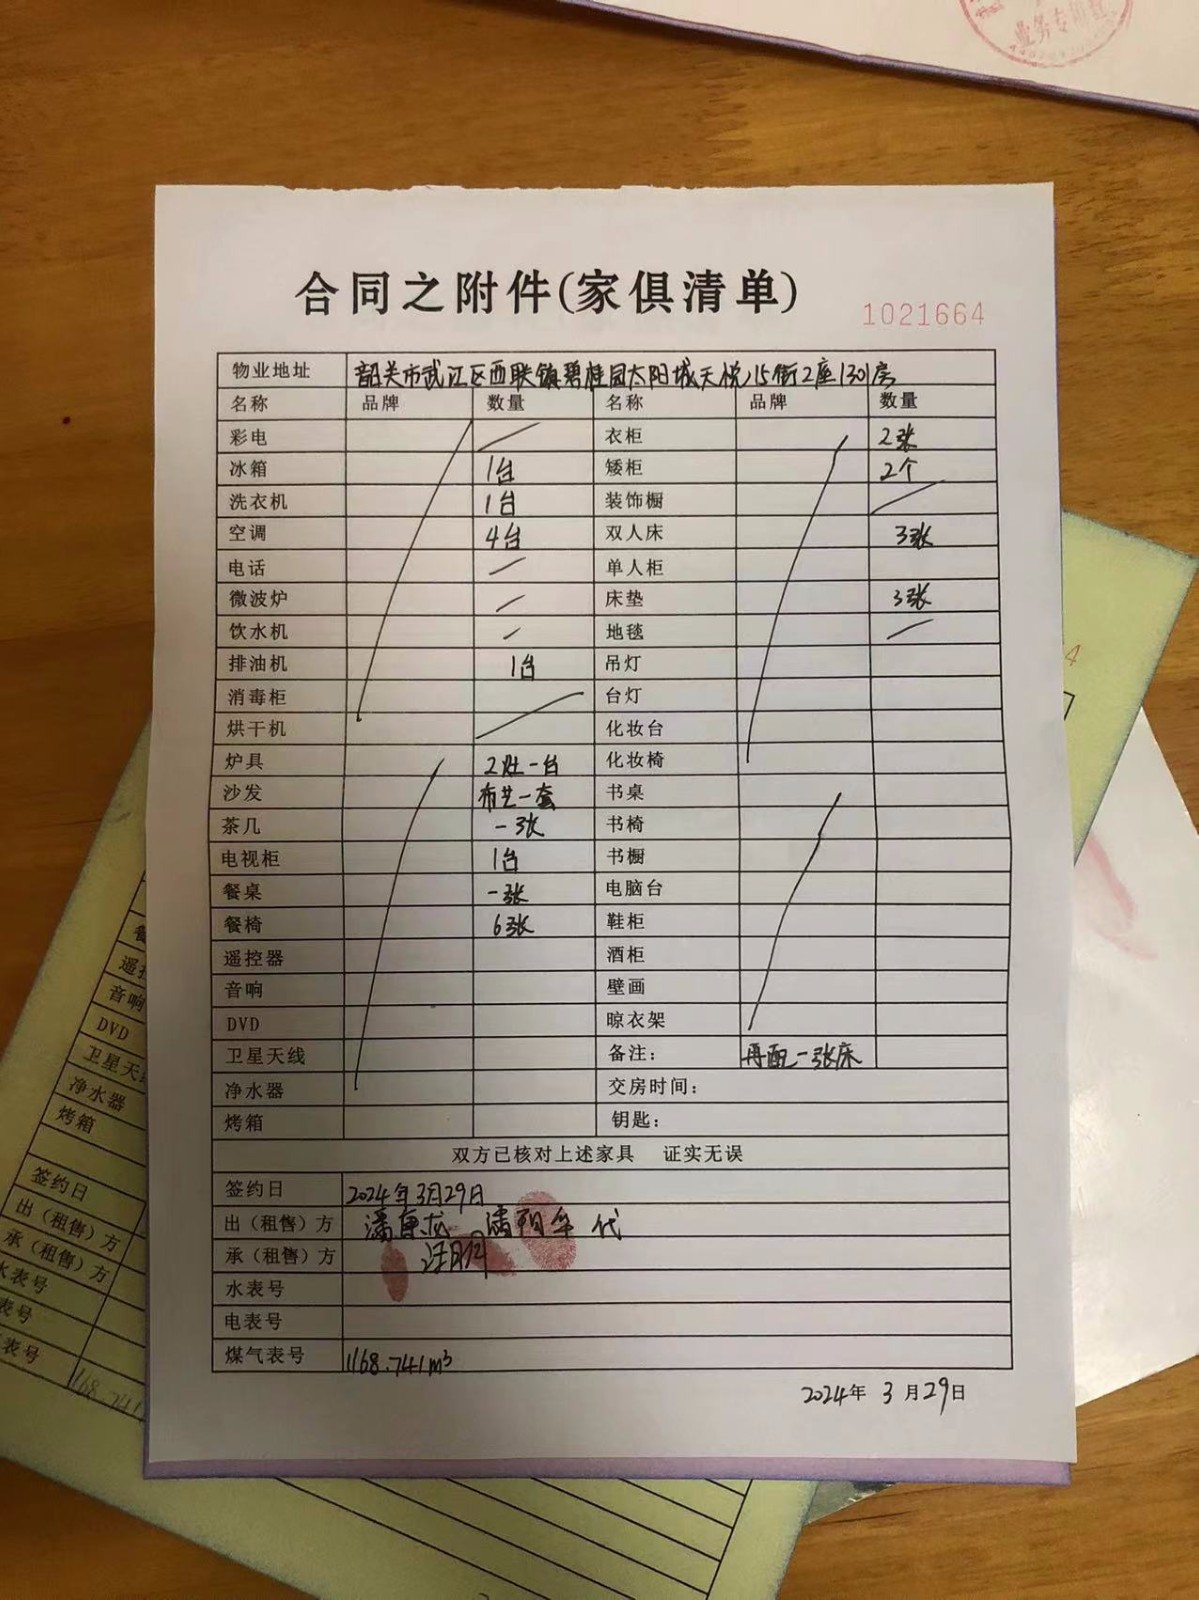 业务专用章
合同之附件(家俱清单)
1021664
物业地址 韶关市武江区西联镇碧桂园太阳城天悦15街2座1301房
名称 品牌 数量 名称 品牌 数量
彩电 衣柜 2张
冰箱 1台 矮柜 2个
洗衣机 1台 装饰橱
空调 4台 双人床 3张
电话 单人柜
微波炉 床垫 3张
饮水机 地毯
排油机 1台 吊灯
消毒柜 台灯
烘干机 化妆台
炉具 2灶一台 化妆椅
沙发 布艺一套 书桌
茶几 一张 书椅
电视柜 1台 书橱
餐桌 一张 电脑台
餐椅 6张 鞋柜
遥控器 酒柜
音响 壁画
DVD 晾衣架
卫星天线 备注: 再配一张床
净水器 交房时间:
烤箱 钥匙:
双方已核对上述家具 证实无误
签约日 2024年3月29日
出(租售)方 潘 代
承(租售)方 汪
水表号
电表号
煤气表号 1168.741m³
2024年 3月29日
音响
DVD
卫星天
净水器
烤箱
签约日
出(租售)方
承(租售)方
水表号
表号
表号